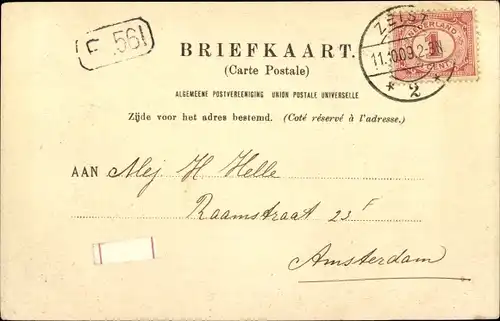 F. 561
BRIEFKAART.
(Carte Postale)
ALGEMEENE POSTVEREENIGING UNION POSTALE UNIVERSELLE
Zijde voor het adres bestemd. (Coté réservé à l'adresse.)
ZEIST
11.10.09.2-3N
* 2 *
NEDERLAND
CENT
AAN Mej H Helle
Raamstraat 23 F
Amsterdam